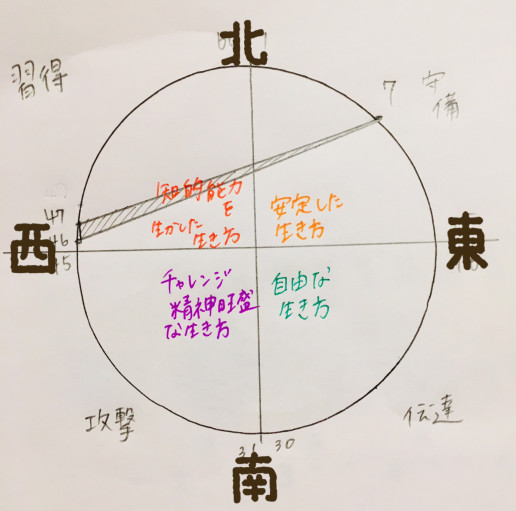 北
習得
7
守
備
知的能力
を
生かした
生き方
安定した
生き方
47
46
45
西
東
チャレンジ
精神旺盛
な生き方
自由な
生き方
攻撃
伝達
31 30
南